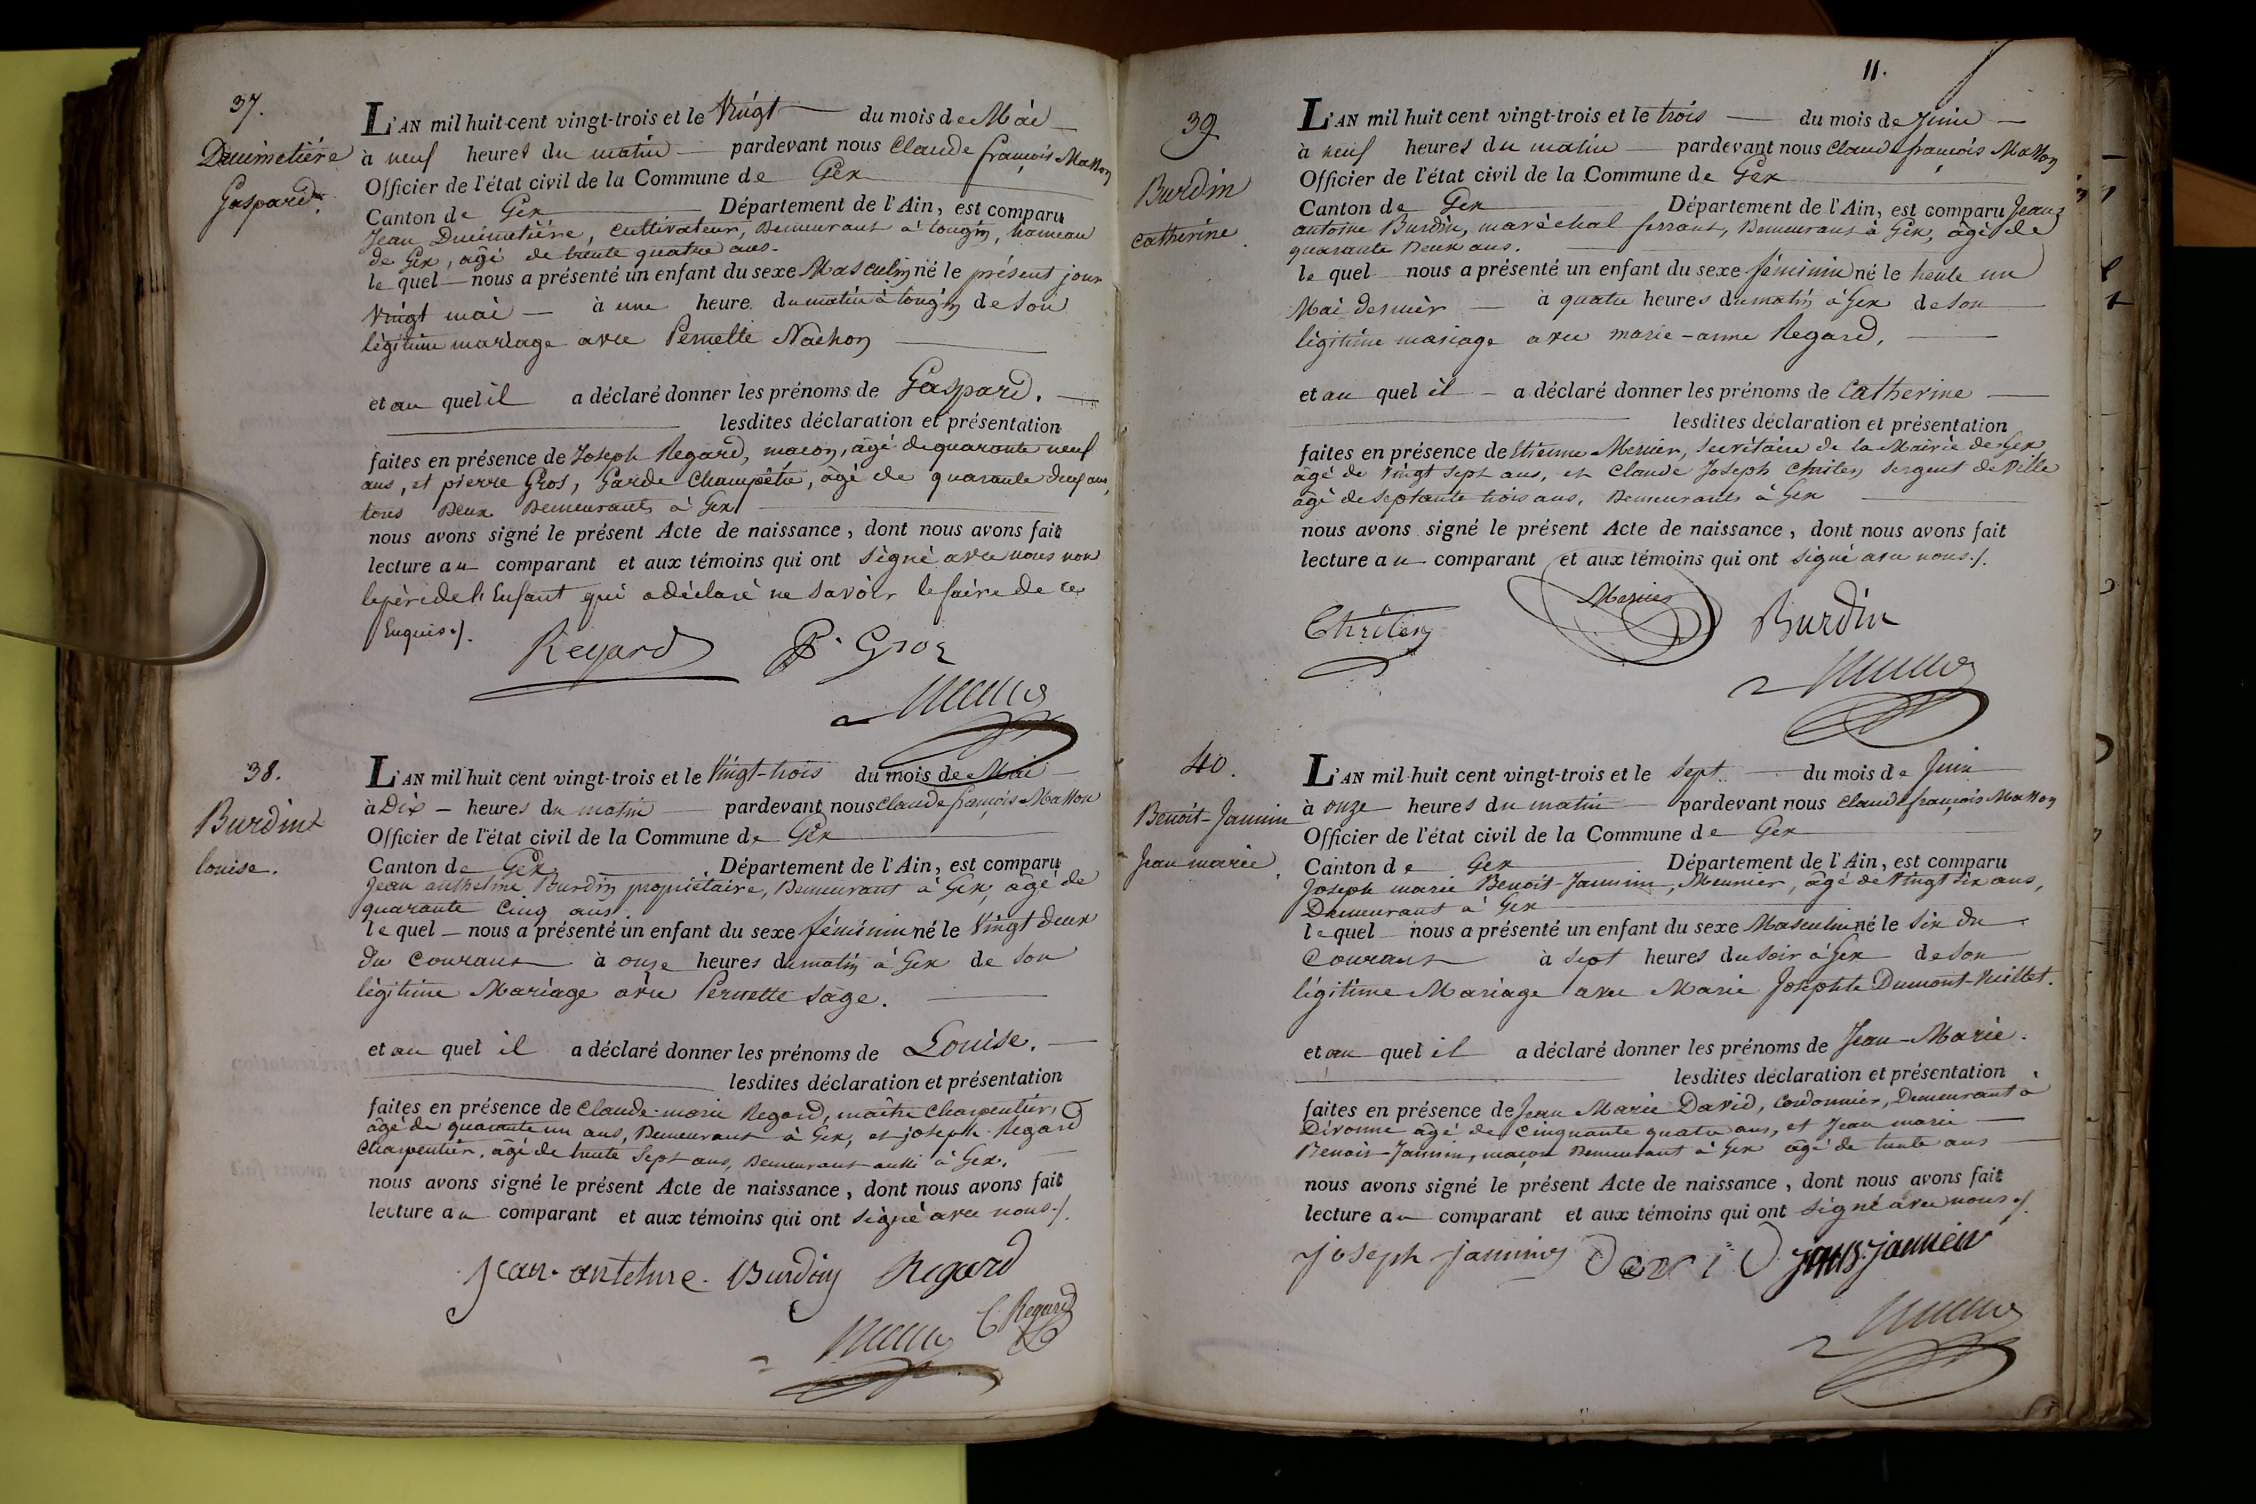 37.
Ducimetière
Gaspard.
L'AN mil huit cent vingt-trois et le Vingt du mois de Mai
à neuf heures du matin pardevant nous Claude françois Masson
Officier de l'état civil de la Commune de Gex
Canton de Gex Département de l'Ain, est comparu
Jean Ducimetière, cultivateur, Demeurant à tougin, hameau
de Gex, âgé de trente quatre ans.
le quel nous a présenté un enfant du sexe Masculin né le présent jour
Vingt mai à une heure du matin à tougin de son
légitime mariage avec Pernette Nachon
et au quel il a déclaré donner les prénoms de Gaspard.
lesdites déclaration et présentation
faites en présence de Joseph Regard, maçon, âgé de quarante neuf
ans, et pierre Gros, Garde Champêtre, âgé de quarante deux ans,
tous Deux Demeurants à Gex
nous avons signé le présent Acte de naissance, dont nous avons fait
lecture au comparant et aux témoins qui ont signé avec nous non
le père de l'Enfant qui a déclaré ne savoir le faire de ce
Enquis./.
Regard P. Gros
38.
Burdin
louise.
L'AN mil huit cent vingt-trois et le Vingt-trois du mois de Mai
à Dix heures du matin pardevant nous Claude françois Masson
Officier de l'état civil de la Commune de Gex
Canton de Gex Département de l'Ain, est comparu
Jean anthelme Burdin propriétaire, Demeurant à Gex, âgé de
quarante cinq ans
le quel nous a présenté un enfant du sexe féminin né le Vingt deux
du courant à onze heures du matin à Gex de son
légitime Mariage avec Pernette Sage.
et au quel il a déclaré donner les prénoms de Louise.
lesdites déclaration et présentation
faites en présence de Claude-marie Regard, maître charpentier,
âgé de quarante un ans, Demeurant à Gex, et joseph Regard
Charpentier, âgé de trente Sept ans, Demeurant aussi à Gex.
nous avons signé le présent Acte de naissance, dont nous avons fait
lecture au comparant et aux témoins qui ont signé avec nous./.
Jean-antelme Burdin Regard
C Regard
11.
39
Burdin
catherine.
L'AN mil huit cent vingt-trois et le trois du mois de Juin
à neuf heures du matin pardevant nous Claude françois Masson
Officier de l'état civil de la Commune de Gex
Canton de Gex Département de l'Ain, est comparu Jean
antoine Burdin, maréchal ferrant, Demeurant à Gex, âgé de
quarante Deux ans.
le quel nous a présenté un enfant du sexe féminin né le trente un
Mai dernier à quatre heures du matin à Gex de son
légitime mariage avec marie-anne Regard,
et au quel il a déclaré donner les prénoms de Catherine
lesdites déclaration et présentation
faites en présence de Etienne Mercier, secrétaire de la Mairie de Gex
âgé de Vingt sept ans, et Claude Joseph Chriten sergent de Ville
âgé de septante trois ans, Demeurants à Gex
nous avons signé le présent Acte de naissance, dont nous avons fait
lecture au comparant et aux témoins qui ont signé avec nous./.
Chriten Mercier Burdin
40.
Benoit-Jannin
Jean marie.
L'AN mil huit cent vingt-trois et le sept du mois de Juin
à onze heures du matin pardevant nous Claude françois Masson
Officier de l'état civil de la Commune de Gex
Canton de Gex Département de l'Ain, est comparu
Joseph marie Benoit-Jannin, Meunier, âgé de Vingt six ans,
Demeurant à Gex
le quel nous a présenté un enfant du sexe Masculin né le six du
Courant à sept heures du soir à Gex de son
légitime Mariage avec Marie Josephte Dumont-Vuillet.
et au quel il a déclaré donner les prénoms de Jean-Marie.
lesdites déclaration et présentation
faites en présence de Jean Marie David, Cordonnier, Demeurant à
Divonne âgé de cinquante quatre ans, et Jean marie
Benoit-Jannin, maçon Demeurant à Gex âgé de trente ans
nous avons signé le présent Acte de naissance, dont nous avons fait
lecture au comparant et aux témoins qui ont signé avec nous./.
Joseph jannin David